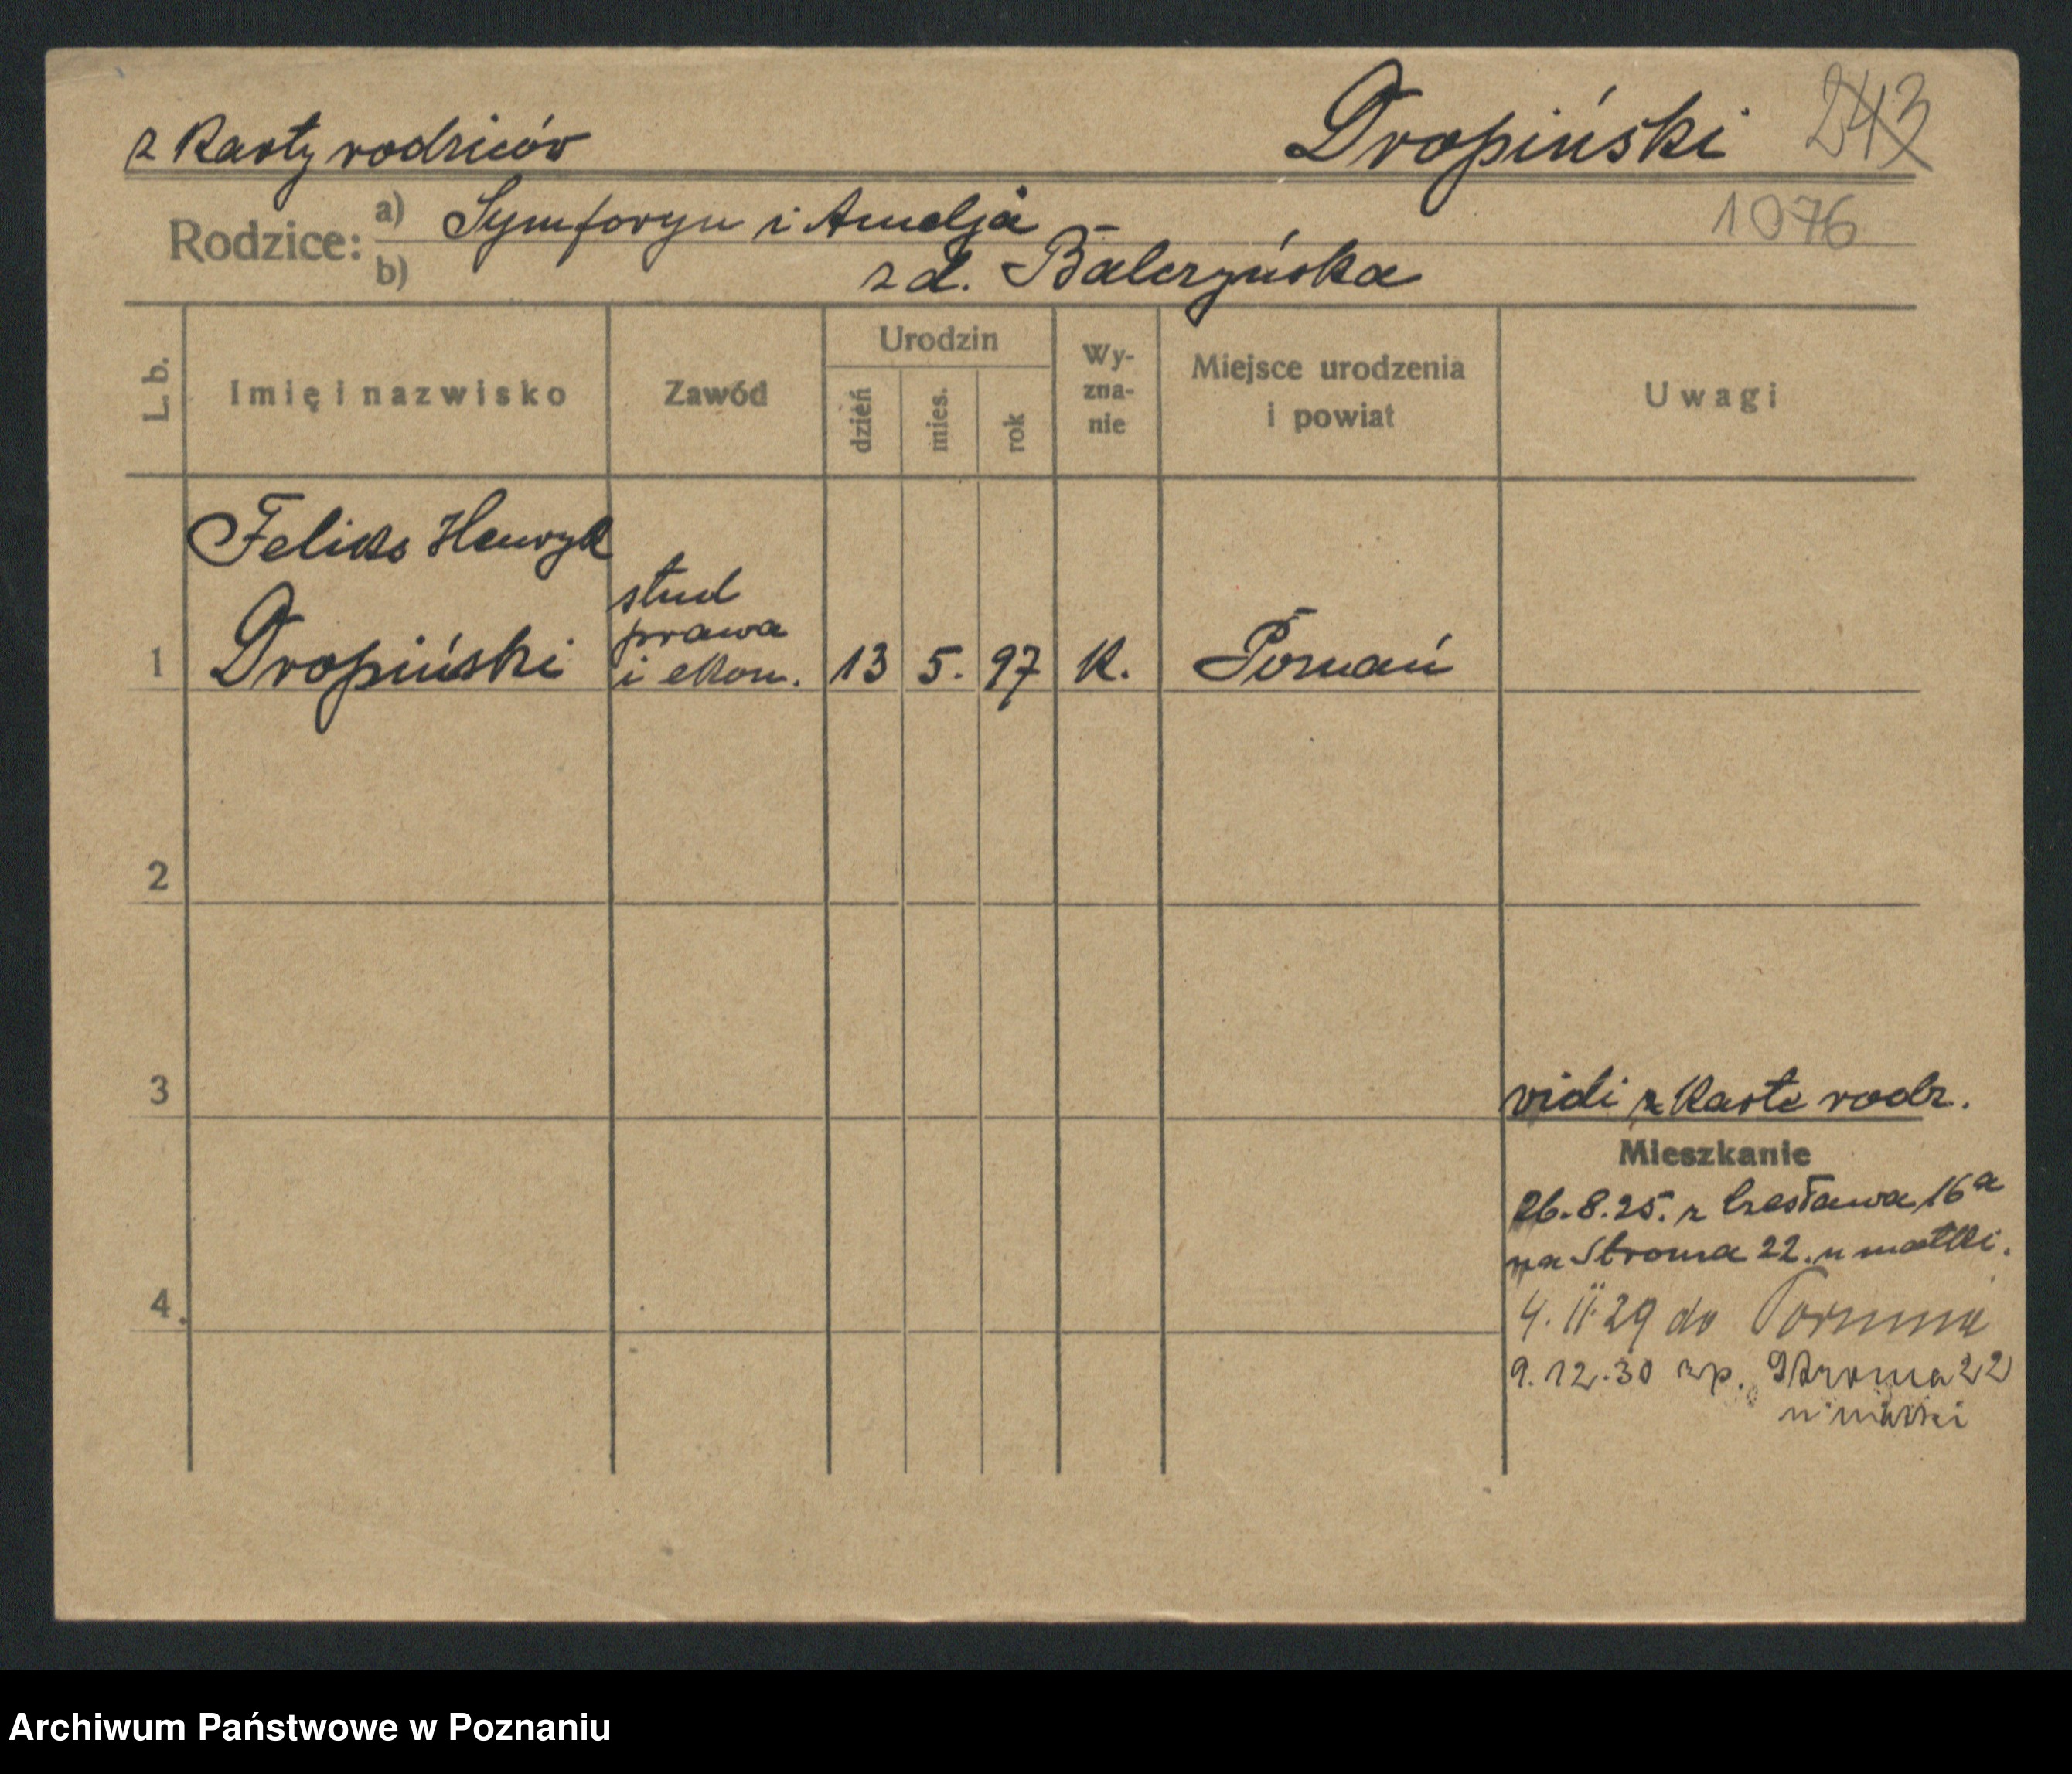 z Karty rodziców Dropiński 243
1076
Rodzice: a) Symforyn i Amelja
b) z d. Balczyńska
L. b.
Imię i nazwisko
Zawód
Urodzin
dzień
mies.
rok
Wy-
zna-
nie
Miejsce urodzenia
i powiat
Uwagi
Feliks Henryk
stud
prawa
1 Dropiński i ekon. 13 5. 97 K. Poznań
2
3
vidi z Kartę rodz.
Mieszkanie
26.8.25. z Czesława 16a
na Stroma 22. u matki.
4. 4. II. 29 do Torunia
9.12.30 zp. Stroma 22
u matki
Archiwum Państwowe w Poznaniu